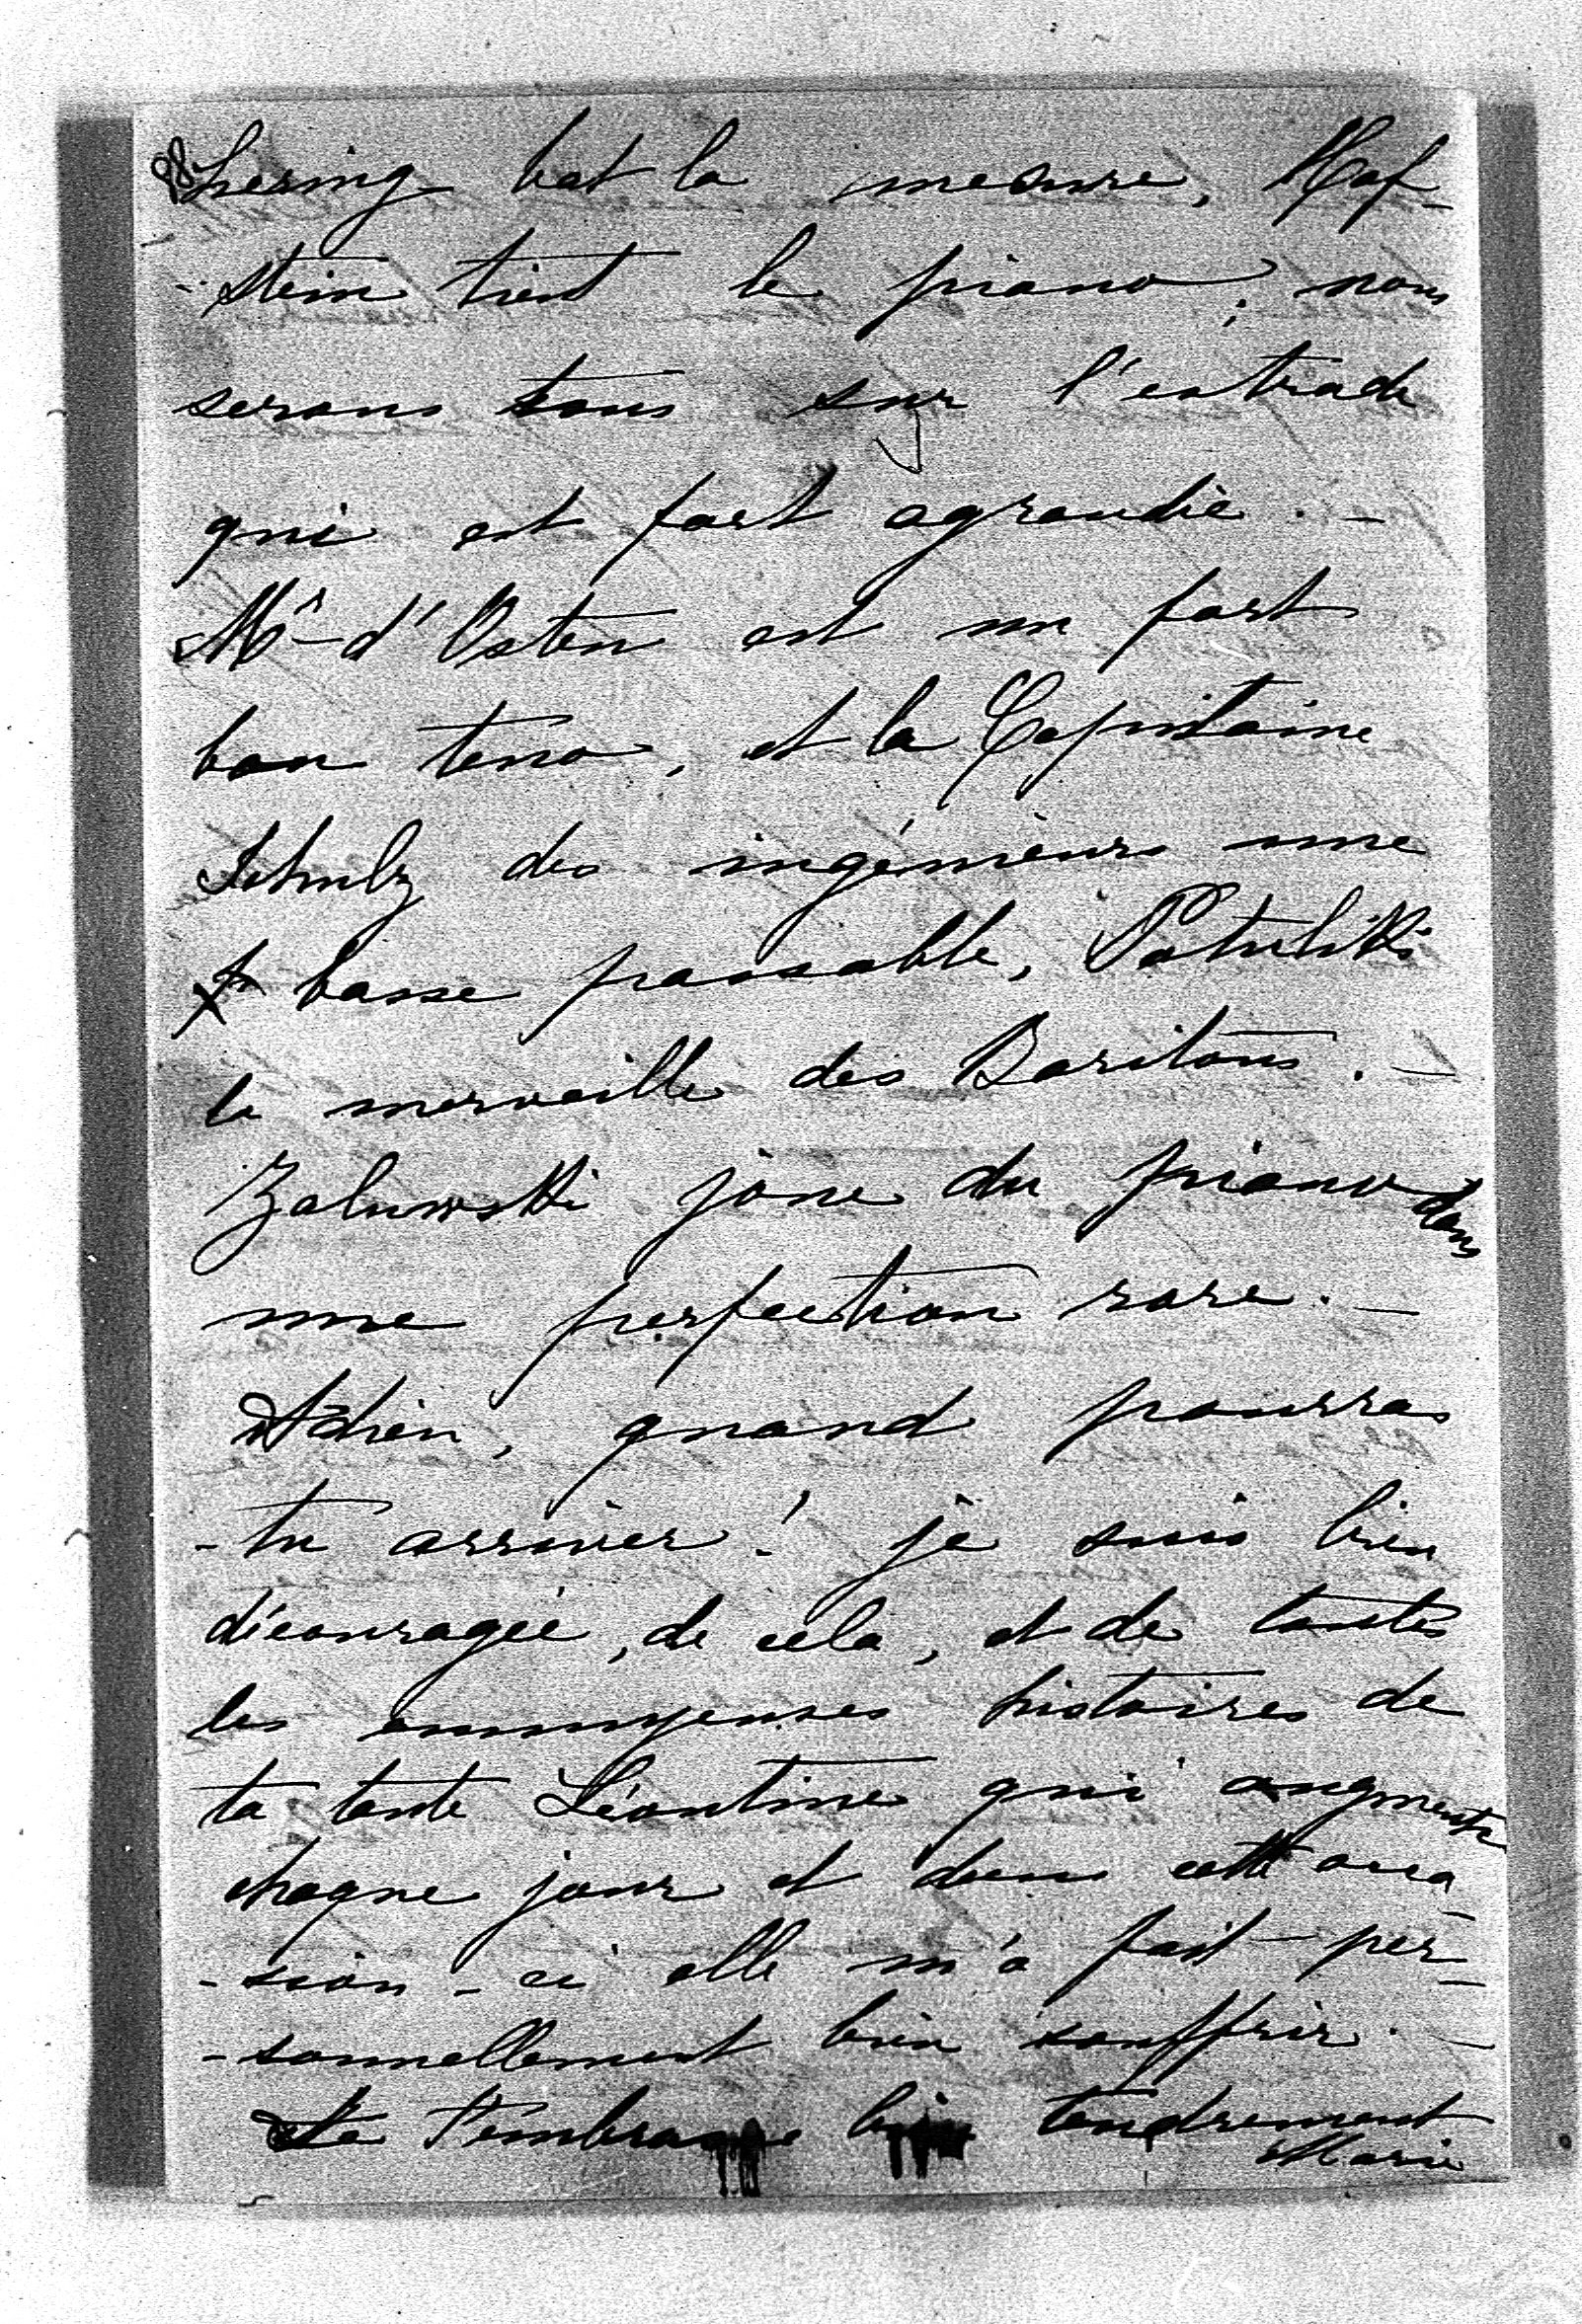 98
hering bat la mesure, Haf-
-stein tient le piano; nous
serons tous sur l'estrade
qui est fort agrandie. —
Mr d'Osten est un fort
bon teno, et la Capitaine
Schulz des ingénieurs une
basse passable, Potulitki
le merveille des Baritons. —
Zaluwski joue du piano dans
une perfection rare. —
Adieu, quand pourras
-tu arriver! je suis bien
découragée, de cela, et de toutes
les ennuyeuses histoires de
ta tante Léontine qui augmente
chaque jour et dans cette occa-
-sion-ci elle m'a fait per-
-sonnellement bien souffrir. —
Je t'embrasse bien tendrement
Marie